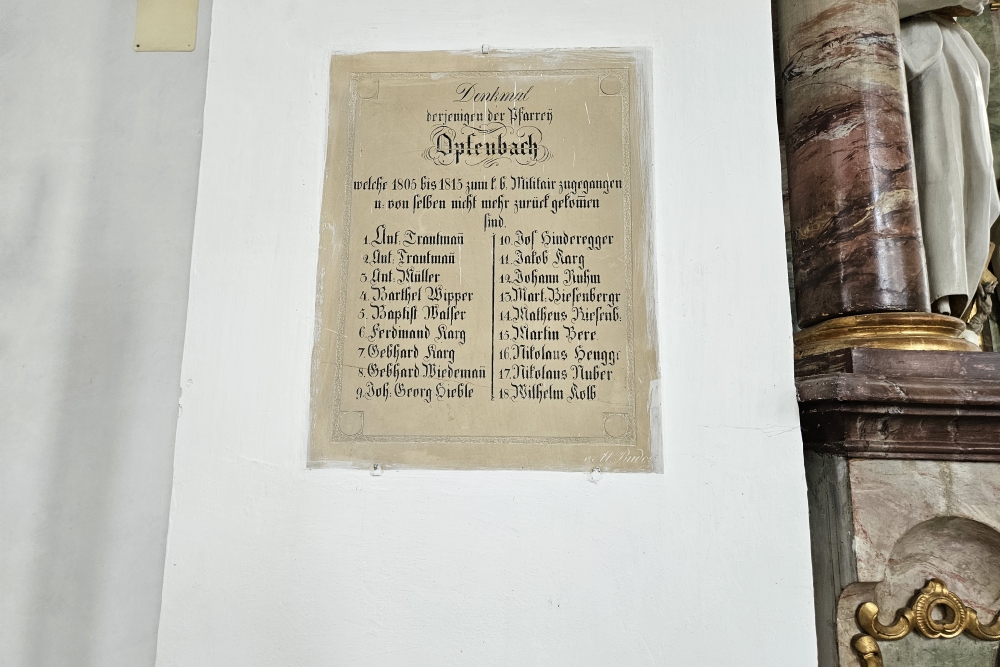 Denkmal
derjenigen der Pfarreÿ
Opfenbach
welche 1805 bis 1815 zum k. b. Militair zugegangen
u: von selben nicht mehr zurück gekom̄en
sind.
1. Ant: Trautman̄
2. Ant: Trautman̄
3. Ant: Müller
4. Barthel Wipper
5. Baptist Walser
6. Ferdinand Karg
7. Gebhard Karg
8. Gebhard Wiedeman̄
9. Joh: Georg Hieble
10. Jos Hinderegger
11. Jakob Karg
12. Johann Ruhm
13. Mart: Biesenbergr
14. Matheus Riesenb:
15. Martin Bere
16. Nikolaus Hengge
17. Nikolaus Nuber
18. Wilhelm Kolb